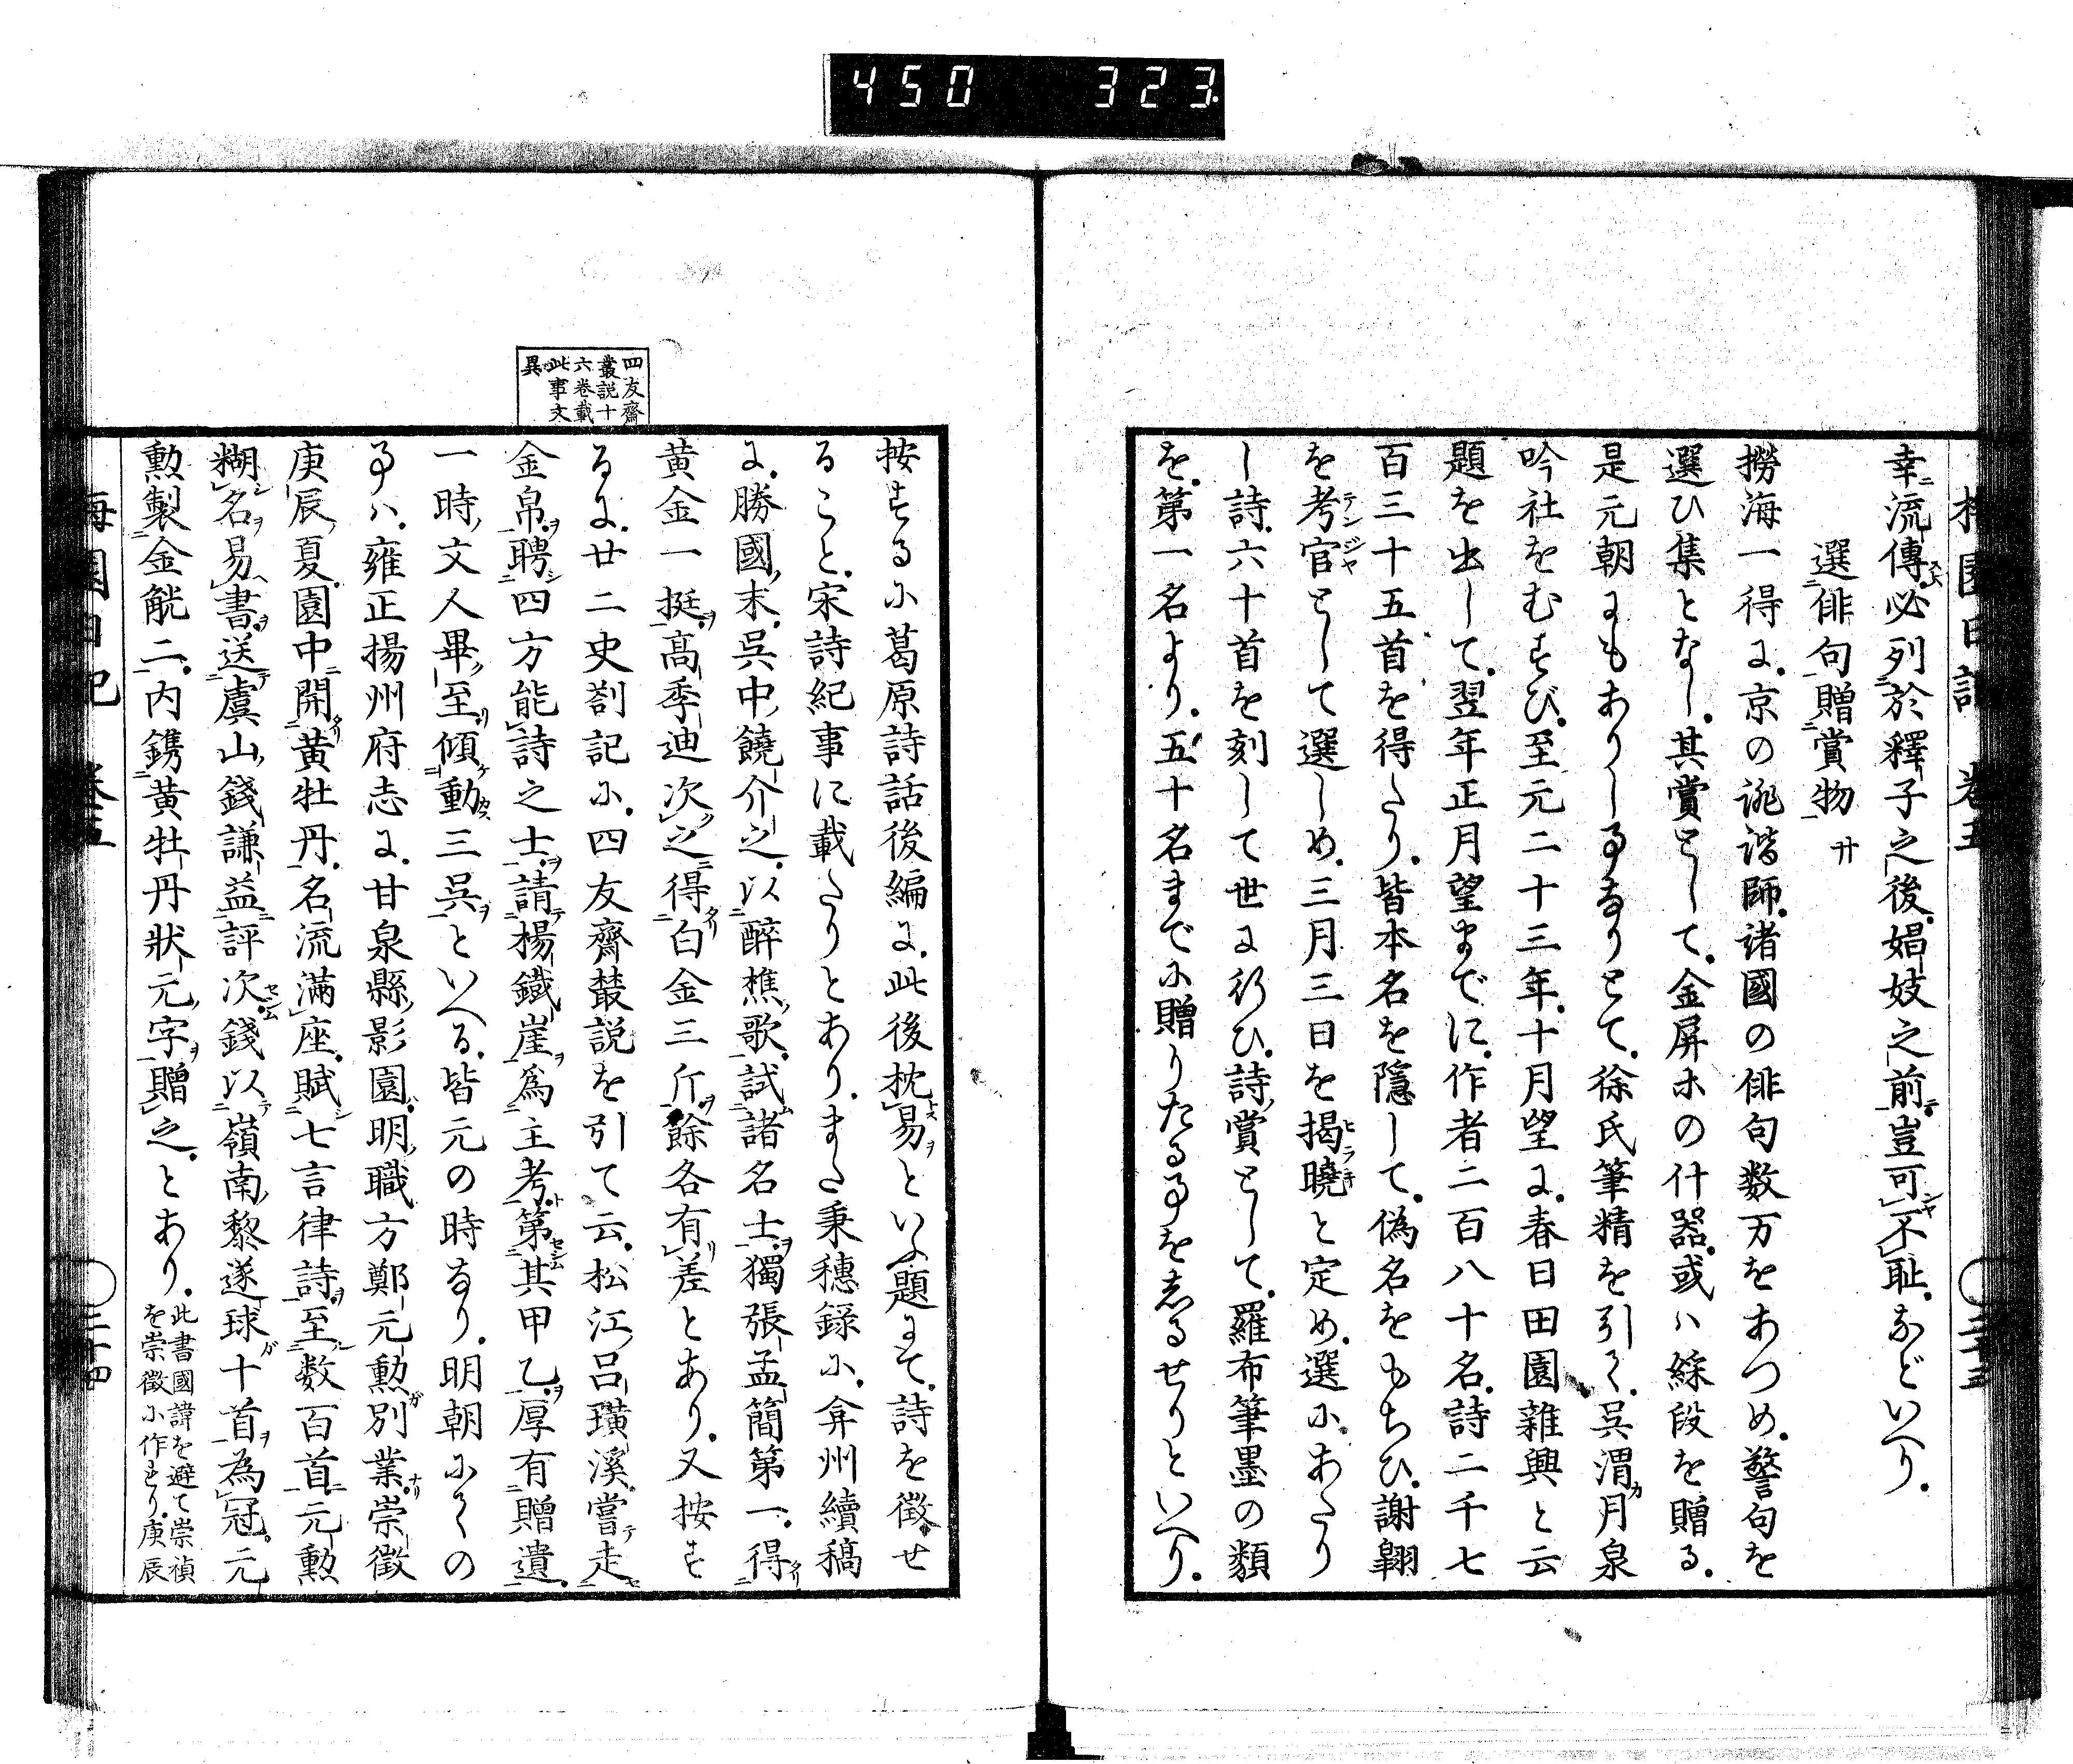 450 323
幸流傳必列於釋子之後娼妓之前豈可不耻などいへり。
選俳句贈賞物 廿
撈海一得に京の誹諧師諸國の俳句数万をあつめ警句を
選ひ集となし其賞として金屏ホの什器或ハ綵段を贈る。
是元朝にもありし事なりとて徐氏筆精を引く呉渭月泉
吟社をむすび至元二十三年十月望に春日田園雑興と云
題を出して翌年正月望までに作者二百八十名詩二千七
百三十五首を得たり皆本名を隠して偽名をもちひ謝翱
を考官として選しめ三月三日を掲曉と定め選にあたり
し詩六十首を刻して世に行ひ詩賞として羅布筆墨の類
を第一名より五十名までに贈りたる事をしるせりといへり。
四友齋
叢説十
六卷載
此事文
異
按するに葛原詩話後編に此後枕易といふ題にて詩を徴せ
ること宋詩紀事に載たりとありまた秉穗録に弇州續稿
に勝國末呉中饒介之以醉樵歌試諸名士獨張孟簡第一得
黄金一挺高季迪次之得白金三斤餘各有差とあり又按す
るに廿二史劄記に四友齋叢説を引て云松江呂璜溪嘗走
金帛聘四方能詩之士請楊鐡崖爲主考第其甲乙厚有贈遺
一時文人畢至傾動三呉といへる皆元の時なり明朝にての
事ハ雍正揚州府志に甘泉縣影園明職方鄭元勲別業崇徵
庚辰夏園中開黄牡丹名流滿座賦七言律詩至数百首元勲
糊名易書送虞山錢謙益評次錢以嶺南黎遂球十首為冠元
勲製金觥二内鐫黄牡丹狀元字贈之とあり。此書國諱を避て崇禎
を崇徵に作れり庚辰